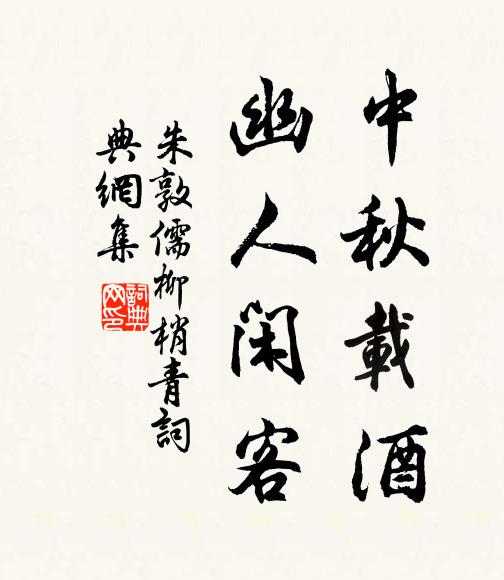 中秋載酒
幽人閑客
朱敦儒柳梢青詞
典網集
詞典
网印